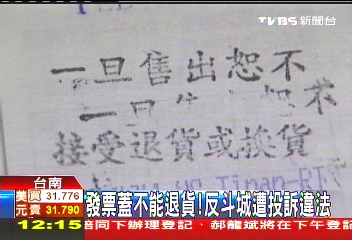 TVBS 新聞台
一旦售出恕不
接受退貨或換貨
台南
美元 買 31.776
賣 31.790
發票蓋不能退貨!反斗城遭投訴違法
12:15
陪同下辦理登記 郝龍斌將於下午辦理登